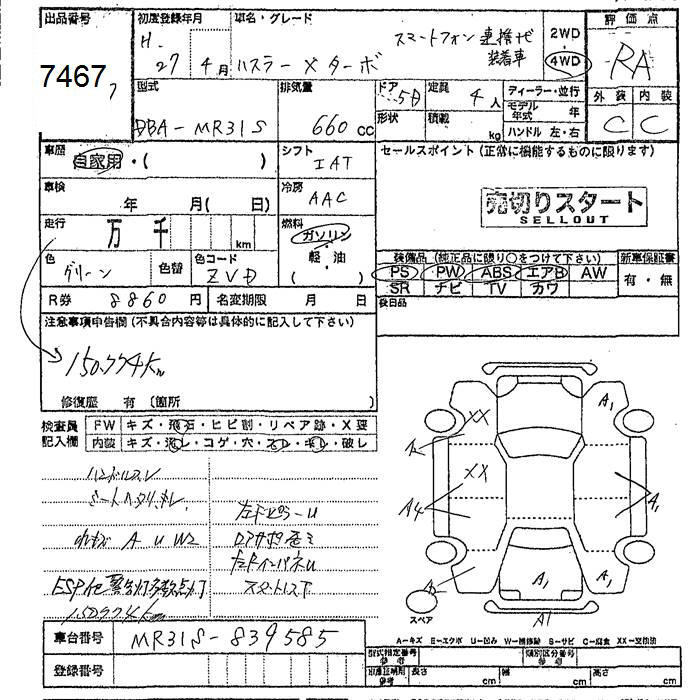 出品番号
7467
初度登録年月
H.
27 4月
車名・グレード
ハスラー X ターボ
スマートフォン連携ナビ
装着車
2WD
・
4WD
評価点
RA
外装 内装
C C
型式
DBA-MR31S
排気量
660 cc
ドア 5D
定員 4 人
形状
積載 kg
ディーラー・並行
モデル年式 年
ハンドル 左・右
車歴
自家用・( )
シフト
IAT
セールスポイント (正常に機能するものに限ります)
車検
年 月( 日)
冷房
AAC
売切りスタート
SELLOUT
走行
万 千 km
燃料
ガソリン
軽・油
( )
色
グリーン
色替
色コード
ZVD
装備品 (純正品に限り○をつけて下さい)
PS PW ABS エアB AW
SR ナビ TV カワ
新車保証書
有・無
R券 8860 円
名変期限 月 日
後日品
注意事項申告欄 (不具合内容等は具体的に記入して下さい)
150,774Km
修復歴 有 (箇所 )
検査員
記入欄
FW キズ・飛石・ヒビ割・リペア跡・X要
内装 キズ・汚レ・コゲ・穴・スレ・キレ・破レ
ハンドルスレ
シートヘタリ、
A U W2
左FピラーU
警告灯多数点灯
XX
A1
XX
A4
A1
A1
A1
スペア
A1
A-キズ E-エクボ U-凹み W-補修跡 S-サビ C-腐食 XX-交換済
車台番号
MR31S-839585
登録番号
型式指定番号
類別区分番号
長さ cm
幅 cm
高さ cm